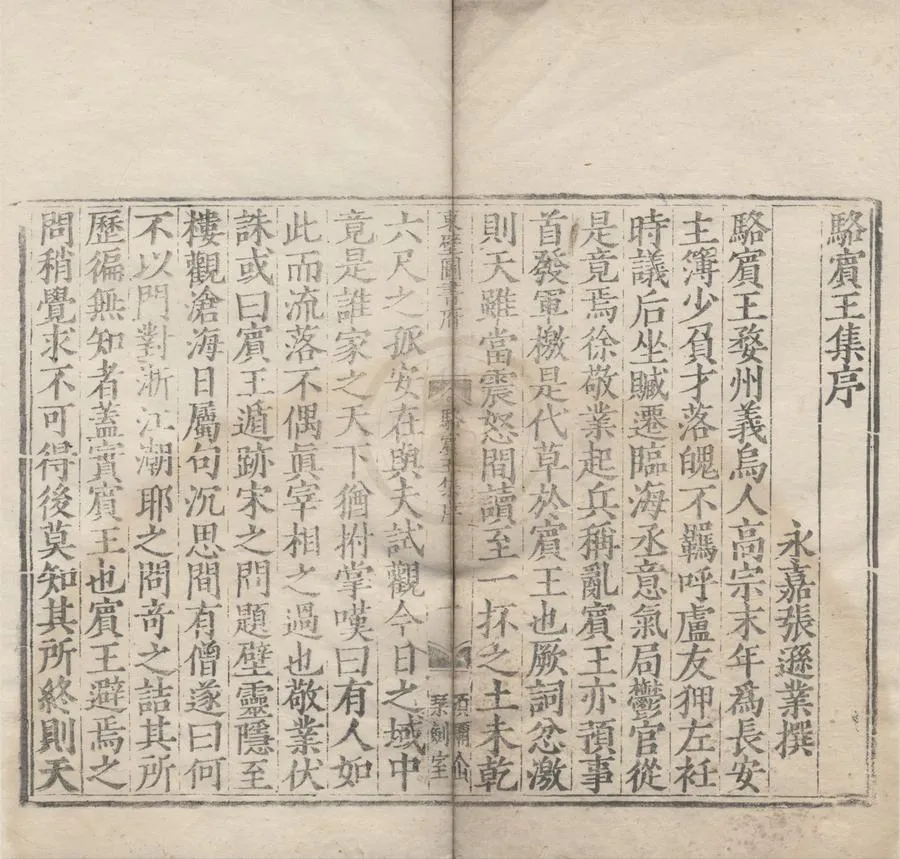 駱賓王集序
永嘉張遜業撰
駱賓王婺州義烏人高宗末年爲長安
主簿少負才落魄不羈呼盧友狎左袵
時議后坐贓遷臨海丞意氣局鬱官從
是竟焉徐敬業起兵稱亂賓王亦預事
首發軍檄是代草於賓王也厥詞忿激
則天雖當震怒間讀至一抔之土未乾
東壁圖書府
駱賓王集序
一
六尺之孤安在與夫試觀今日之域中
竟是誰家之天下猶拊掌嘆曰有人如
此而流落不偶眞宰相之過也敬業伏
誅或曰賓王遁跡宋之問題壁靈隱至
樓觀滄海日屬句沉思間有僧遂曰何
不以門對浙江潮耶之問奇之詰其所
歷徧無知者蓋實賓王也賓王避焉之
問稍覺求不可得後莫知其所終則天